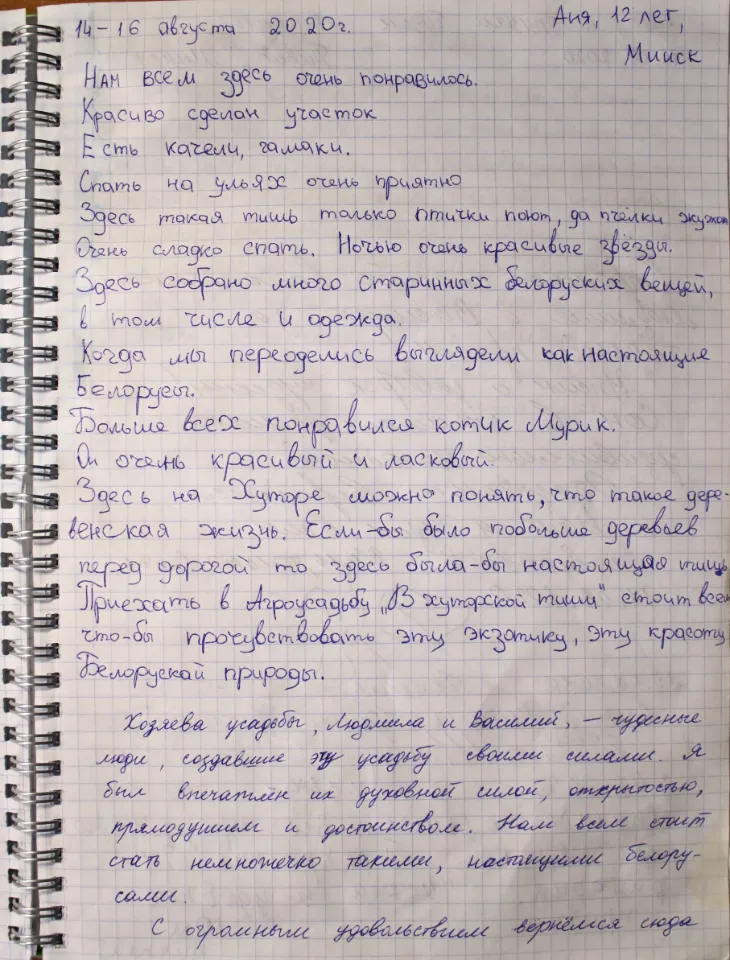 14-16 августа 2020г.
Аня, 12 лет,
Минск
Нам всем здесь очень понравилось.
Красиво сделан участок
Есть качели, гамаки.
Спать на ульях очень приятно
Здесь такая тишь только птички поют, да пчёлки жужжат
Очень сладко спать. Ночью очень красивые звёзды.
Здесь собрано много старинных белоруских вещей,
в том числе и одежда.
Когда мы переоделись выглядели как настоящие
Белорусы.
Больше всех понравился котик Мурик.
Он очень красивый и ласковый.
Здесь на Хуторе можно понять, что такое дере-
венская жизнь. Если-бы было побольше деревьев
перед дорогой то здесь была-бы настоящая тишь
Приехать в Агроусадьбу „В хуторской тиши" стоит всем
что-бы прочувствовать эту экзотику, эту красоту
Белорускай природы.
Хозяева усадьбы, Людмила и Василий, – чудесные
люди, создавшие эту усадьбу своими силами. Я
был впечатлён их духовной силой, открытостью,
прямодушием и достоинством. Нам всем стоит
стать немножечко такими, настоящими белору-
сами.
С огромным удовольствием вернёмся сюда